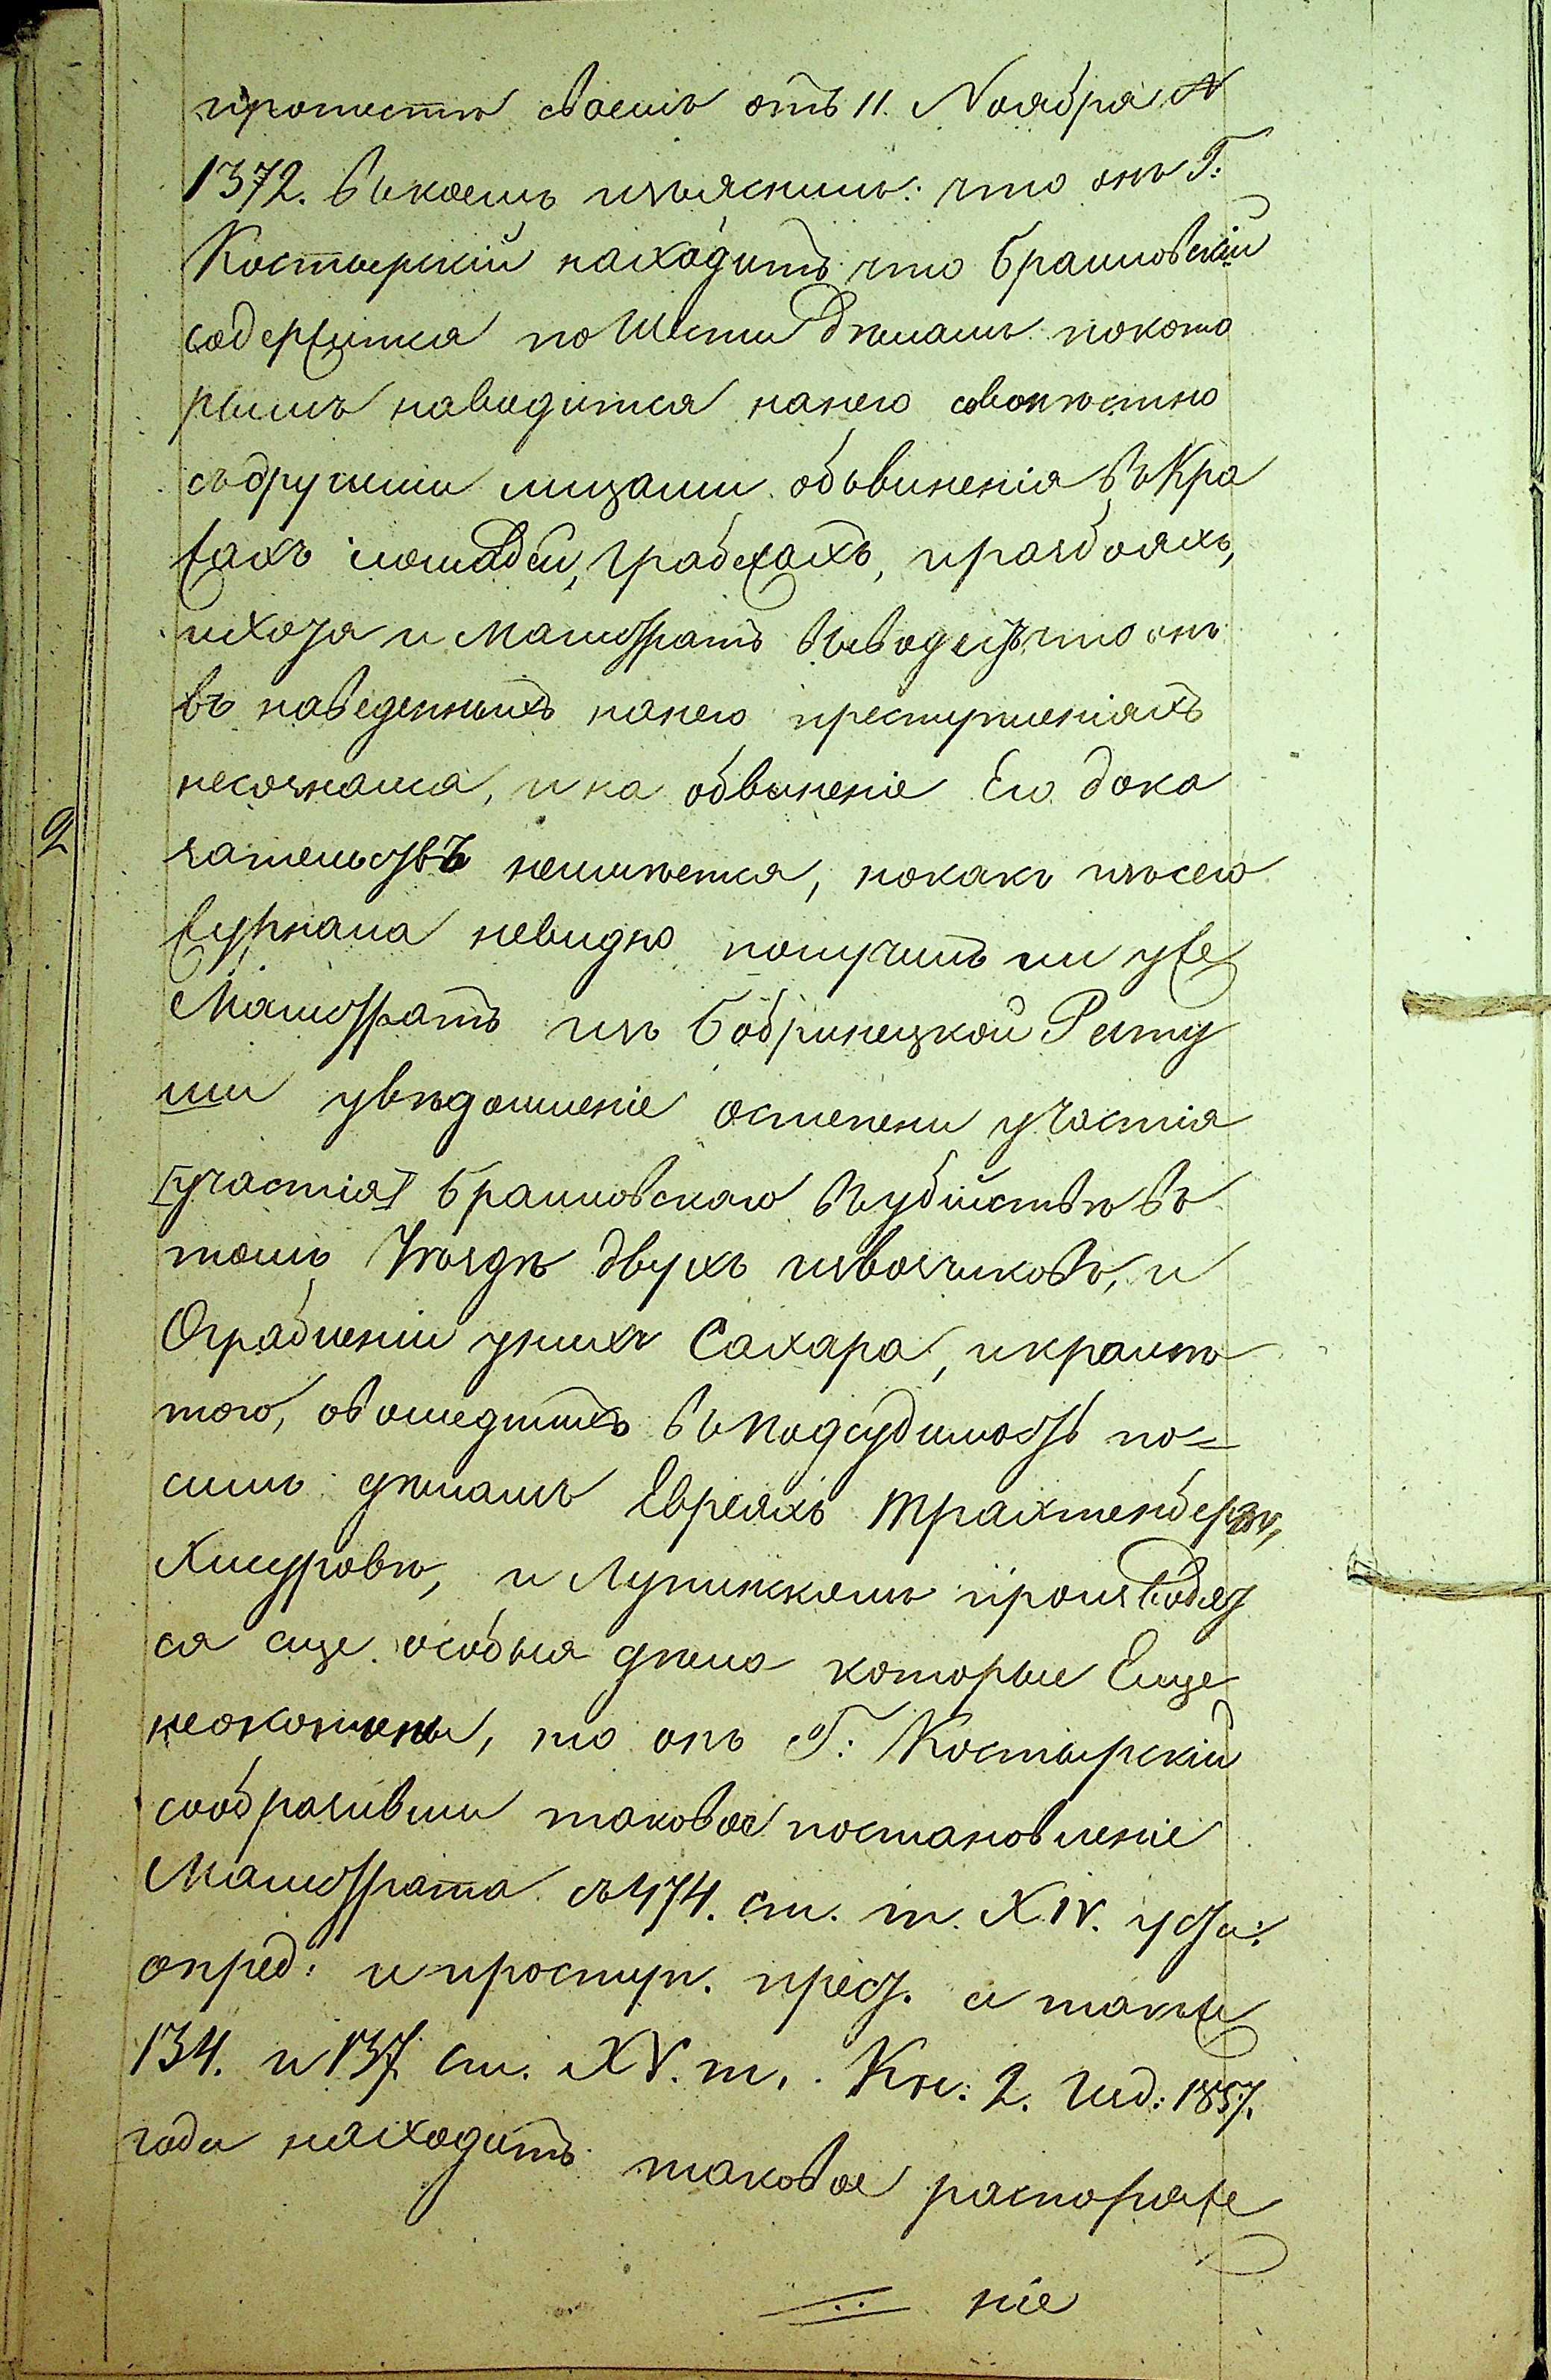 протестѣ своемъ отъ 11. Ноября №
1372. въ коемъ изъяснилъ: что онъ Г:
Костырскій находитъ что Браиловскій
содержится по Шести дѣламъ покото
рымъ наводится нанего совокупно
съдругими лицами объвиненія въ Кра
жахъ лошадей, грабежахъ, иразбояхъ,
ихотя и Магистратъ выводитъ что онъ
въ наведенныхъ нанего преступленіяхъ
несознался, и на обвиненіе Его дока
зательствъ неимѣется, нокакъ изъсего
журнала невидно получилъ ли уже
Магистратъ изъ Бобринецкой Рату
ши увѣдомленіе остепени участія
[участія] Браиловскаго въ убійствѣ въ
томъ Уѣздѣ двухъ извозчиковъ, и
Ограбленіи унихъ Сахара, икромѣ
того, овошедшихъ въ подсудимость по=
симъ дѣламъ Евреяхъ Трахтенбергѣ,
Хмуровѣ, и Лупинскомъ производят
ся еще особыя дѣла которые Еще
неокончены, то онъ Г: Костырскій
сообразивши таковое постановленіе
Магистрата съ 474. ст. т. XIV. уст:
опред: и проступ. прест. а также
134. и 137. ст. XV. т. Кн: 2. Изд: 1857.
года находитъ таковое распоряже
ніе
2